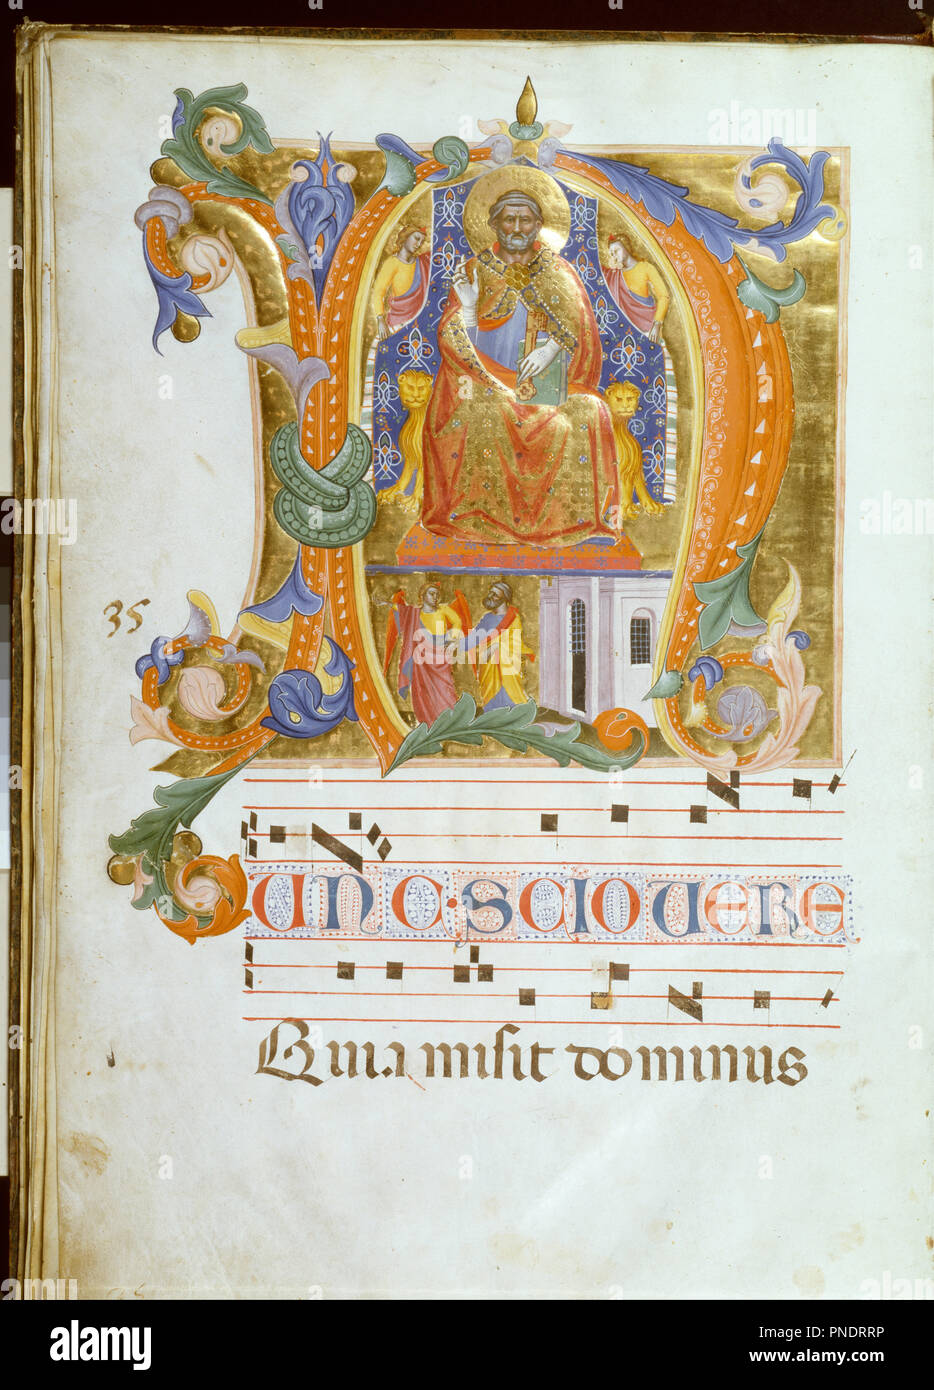 35
NUNC·SCIO VERE
Quia misit dominus
alamy
Image ID: PNDRRP
www.alamy.com